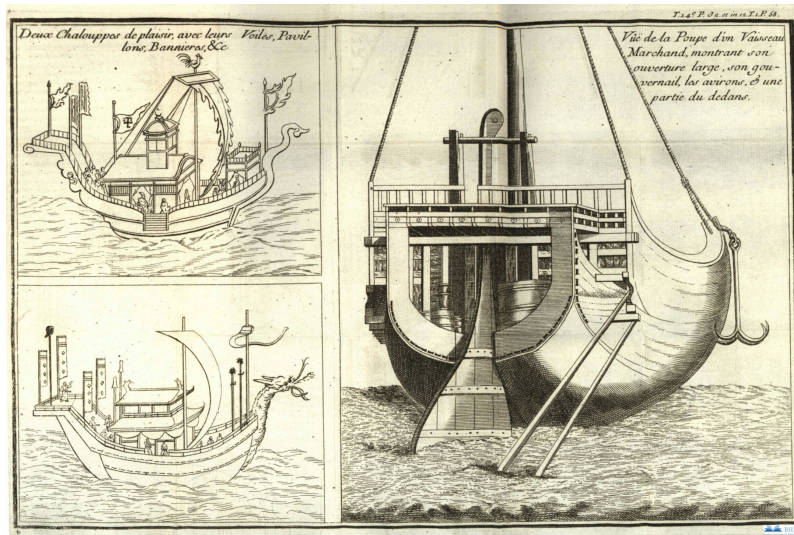 T. 24º P. 32. et in 12 T. 1. P. 58.
Deux Chalouppes de plaisir, avec leurs Voiles, Pavil-
lons, Bannieres, &c
Vüe de la Poupe d'un Vaisseau
Marchand, montrant son
ouverture large, son gou-
vernail, les avirons, & une
partie du dedans.